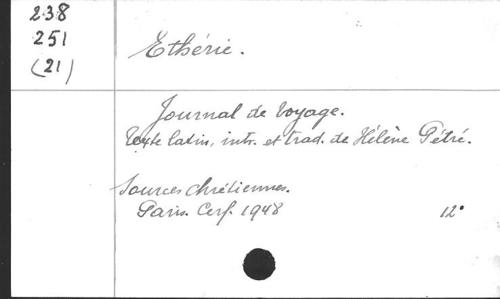 238
251
(21)
Ethérie.
Journal de Voyage.
Texte latin, intr. et trad. de Hélène Pétré.
Sources chrétiennes.
Paris. Cerf. 1948 12°